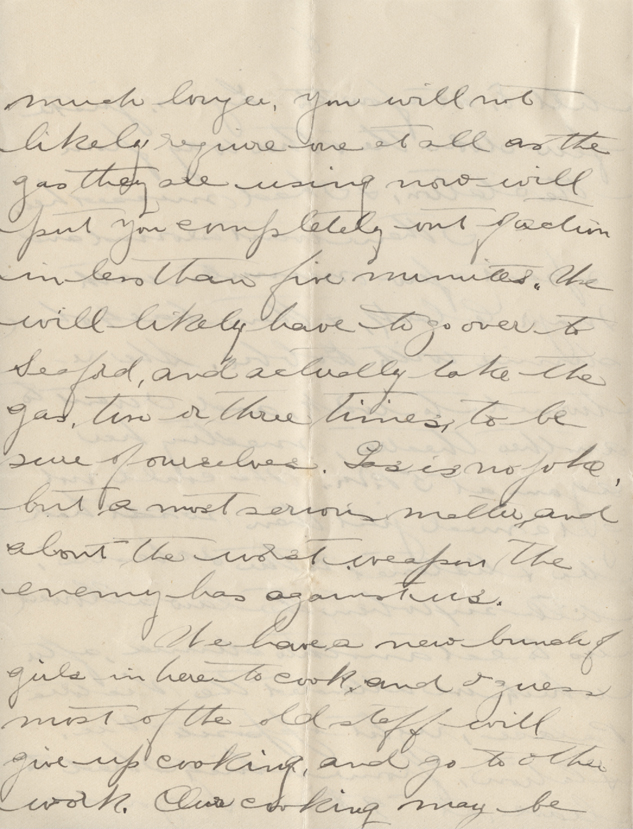 much longer, you will not
likely require one at all as the
gas they are using now will
put you completely out of action
in less than five minutes. We
will likely have to go over to
Seaford, and actually take the
gas, two or three times, to be
sure of ourselves. Gas is no joke,
but a most serious matter, and
about the worst weapon the
enemy has against us.
We have a new bunch of
girls in here to cook, and I guess
most of the old staff will
give up cooking, and go to other
work. Our cooking may be